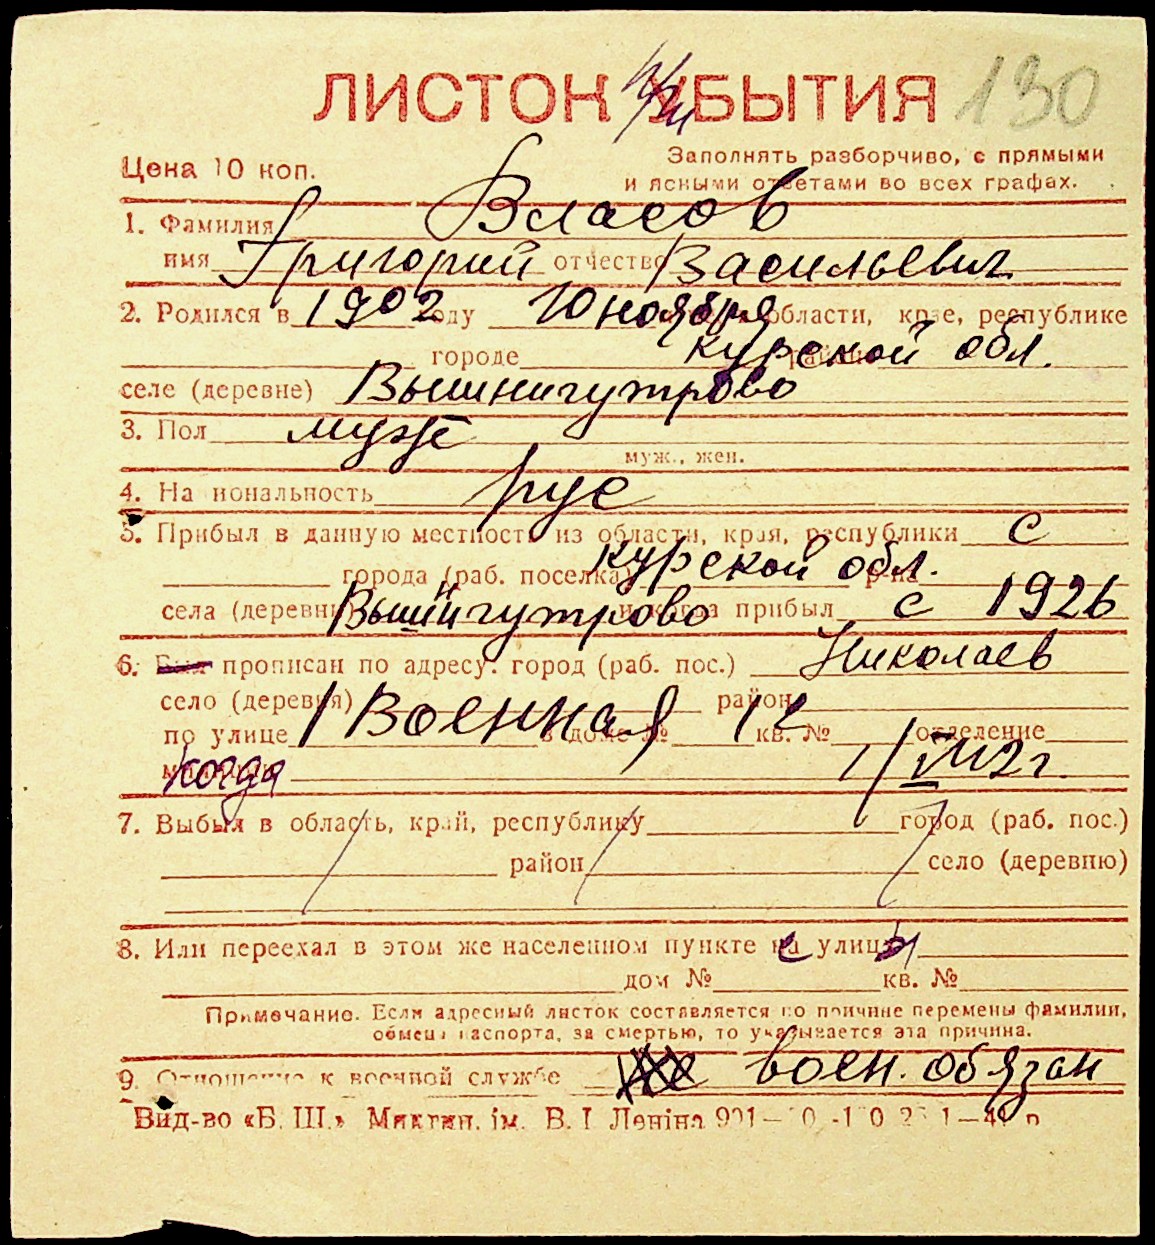 ЛИСТОК УБЫТИЯ 130
Цена 10 коп. Заполнять разборчиво, с прямыми
и ясными ответами во всех графах.
1. Фамилия Власов
имя Григорий отчество Васильевич
2. Родился в 1902 году 10 ноября области, крае, республике
городе Курской обл.
селе (деревне) Вышнигутрово
3. Пол муж
муж., жен.
4. Национальность рус
5. Прибыл в данную местность из области, края, республики с
города (раб. поселка) Курской обл. р-на
села (деревни) Вышнигутрово и когда прибыл с 1926
6. прописан по адресу: город (раб. пос.) Николаев
село (деревня) район
по улице 1 Военная в доме № 12 кв. № отделение
когда
7. Выбыл в область, край, республику город (раб. пос.)
район село (деревню)
8. Или переехал в этом же населенном пункте с улицы
дом № кв. №
Примечание. Если адресный листок составляется по причине перемены фамилии,
обмена паспорта, за смертью, то указывается эта причина.
9. Отношение к военной службе воен. обязан
Вид-во «Б. Ш.» Миктип. ім. В. І Леніна